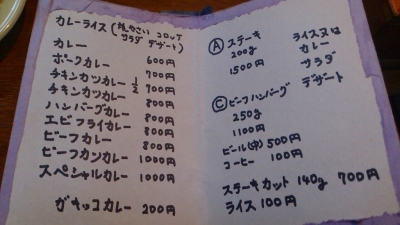 カレーライス(焼やさい コロッケ
サラダ デザート)
カレー 600円
ポークカレー 700円
チキンカツカレー 1/2 700円
チキンカツカレー 800円
ハンバーグカレー 800円
エビフライカレー 800円
ビーフカレー 800円
ビーフカツカレー 1000円
スペシャルカレー 1000円
ガキッコカレー 200円
Ⓐ ステーキ ライス又は
200g カレー
1500円 サラダ
デザート
Ⓒ ビーフハンバーグ
250g
1100円
ビール(中) 500円
コーヒー 100円
ステーキカット 140g 700円
ライス 100円